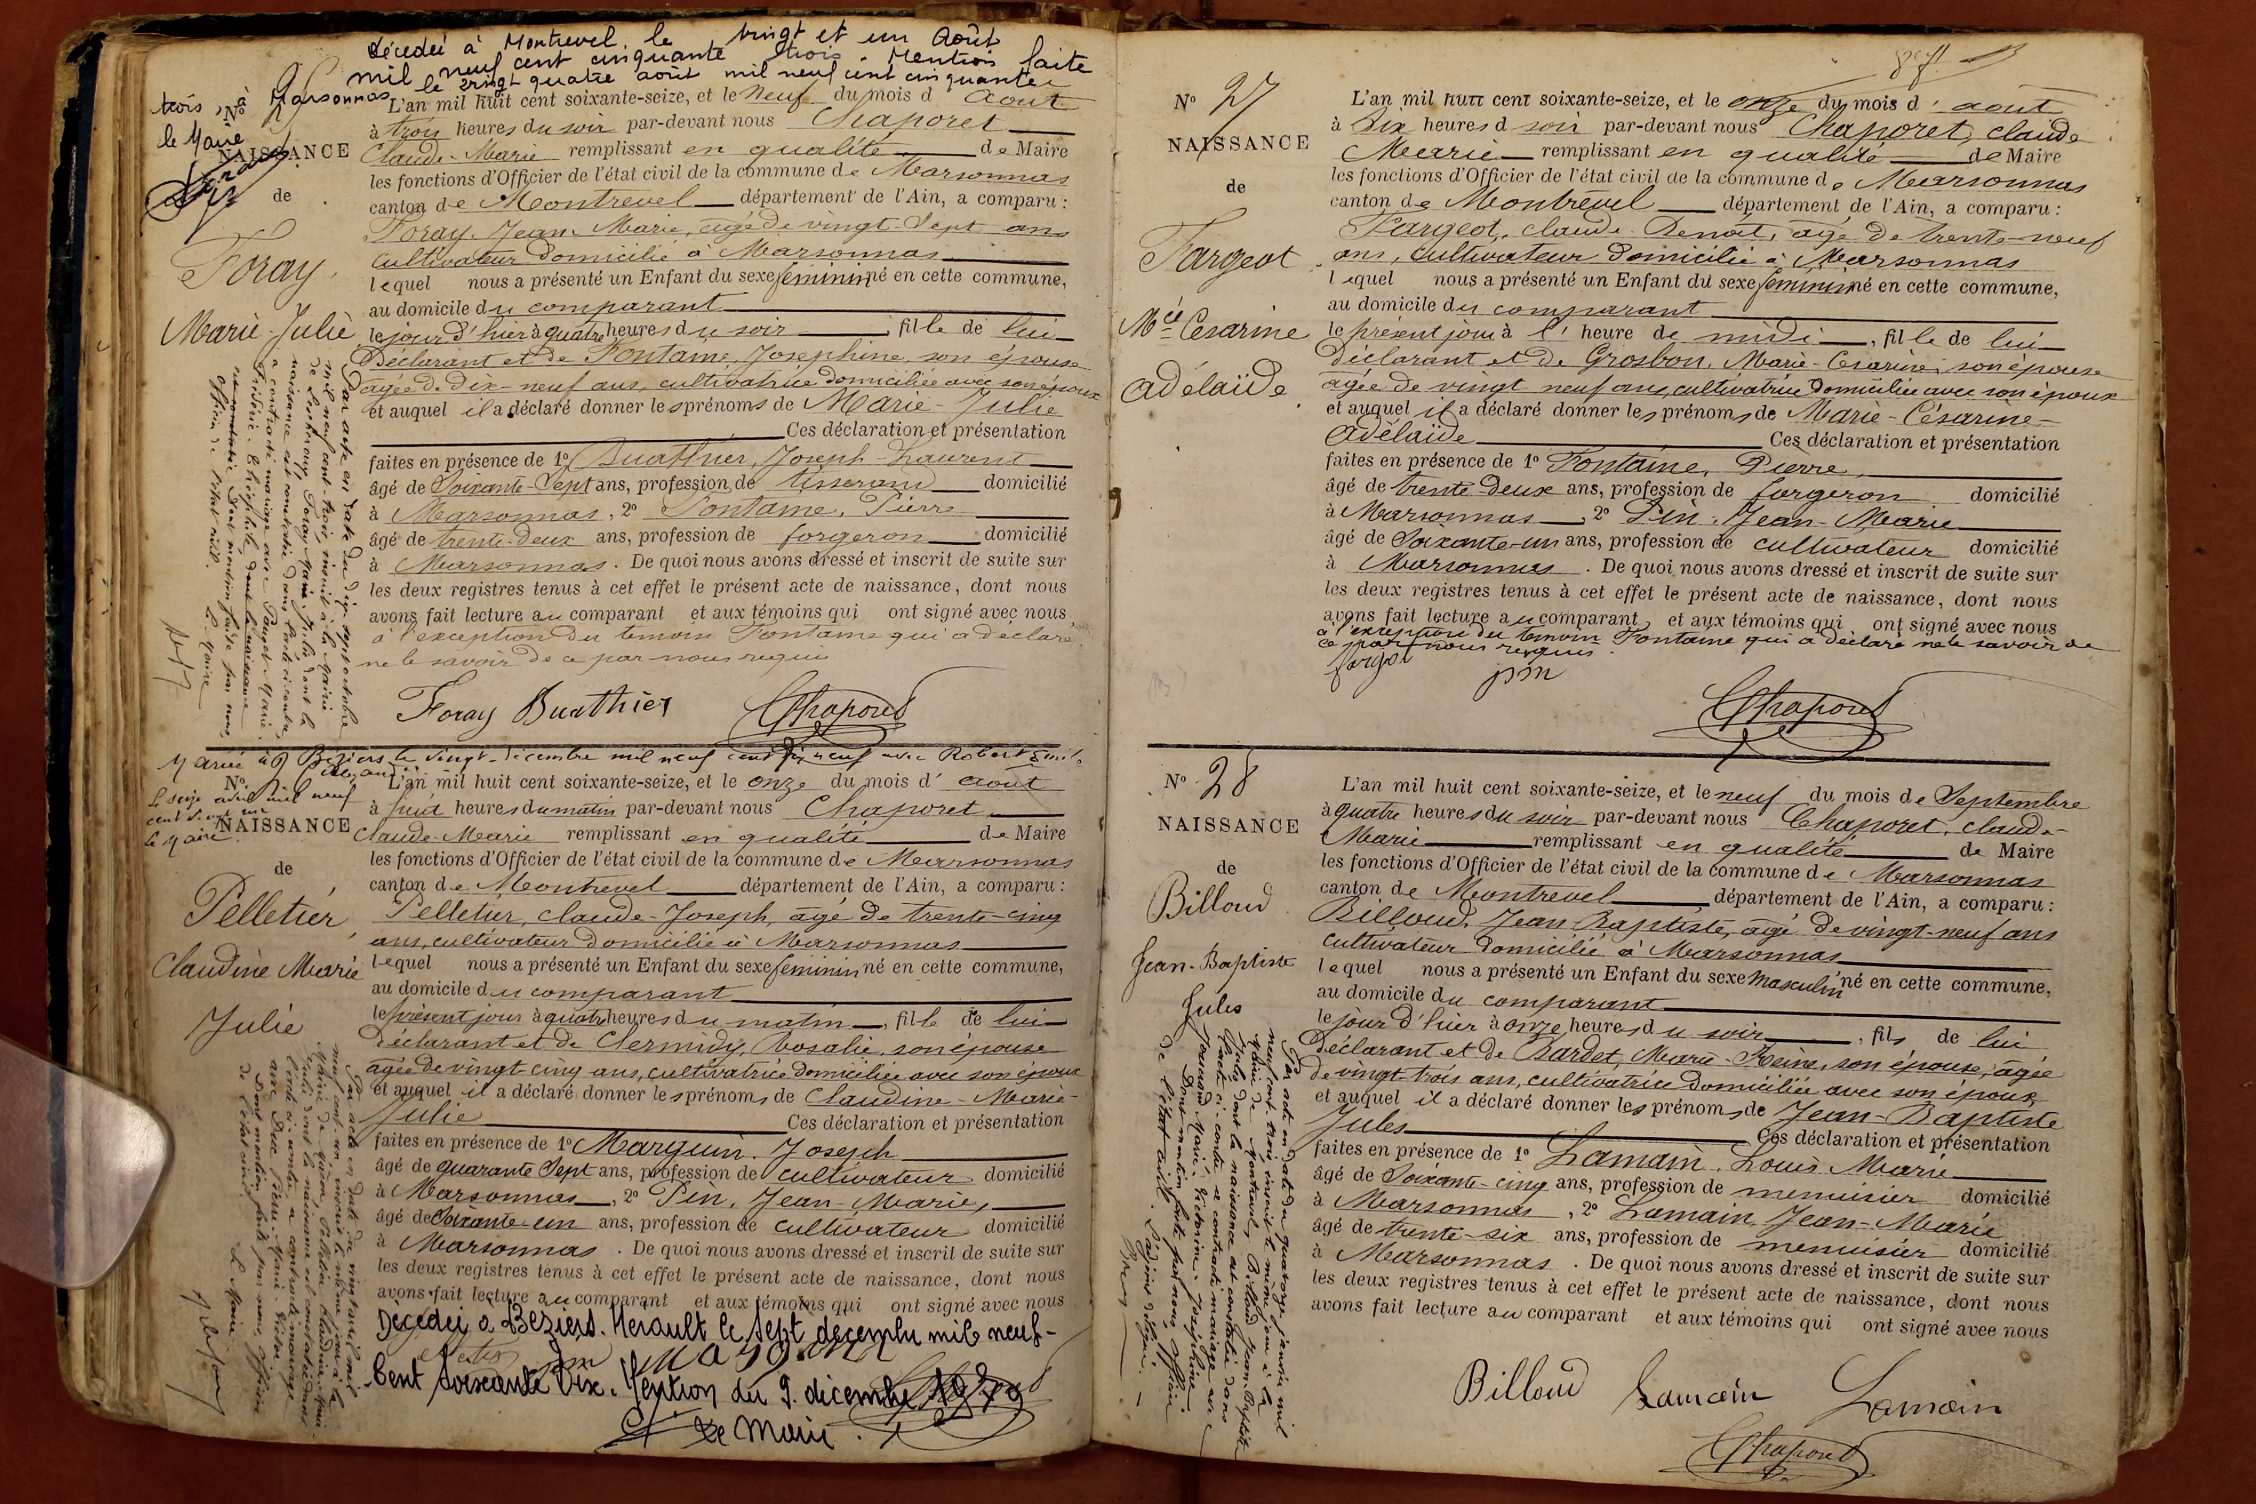 décédée à Montrevel le vingt et un Août
mil neuf cent cinquante trois. Mention faite
trois, à Marsonnas le vingt quatre août mil neuf cent cinquante
le Maire
No 25
NAISSANCE
de
Foray
Marie-Julie
L'an mil huit cent soixante-seize, et le neuf du mois d août
à trois heures du soir par-devant nous Chaporet
Claude-Marie remplissant en qualité de Maire
les fonctions d'Officier de l'état civil de la commune de Marsonnas
canton de Montrevel département de l'Ain, a comparu :
Foray, Jean-Marie, âgé de vingt-Sept ans
cultivateur domicilié à Marsonnas
lequel nous a présenté un Enfant du sexe féminin né en cette commune,
au domicile du comparant
le jour d'hier à quatre heures du soir, fille de lui
Déclarant et de Fontaine, Josephine, son épouse
âgée de Dix-neuf ans, cultivatrice domiciliée avec son époux
et auquel il a déclaré donner les prénoms de Marie-Julie
Ces déclaration et présentation
faites en présence de 1o Buathier, Joseph-Laurent
âgé de Soixante-Sept ans, profession de tisserand domicilié
à Marsonnas, 2o Fontaine, Pierre
âgé de trente-deux ans, profession de forgeron domicilié
à Marsonnas. De quoi nous avons dressé et inscrit de suite sur
les deux registres tenus à cet effet le présent acte de naissance, dont nous
avons fait lecture au comparant et aux témoins qui ont signé avec nous
à l'exception du temoin Fontaine qui a déclaré
ne le savoir de ce par nous requis
Foray Buathier Chaporet
Par acte en date du dix-sept octobre
mil neuf cent-trois, inscrit à la Mairie
de Foray Marie-Julie dont la
naissance est constatée dans l'acte ci-contre,
a contracté mariage avec
Dont mention faite par nous,
officier de l'état civil.
Le Maire
Mariée à Béziers le vingt-décembre mil neuf cent dix neuf avec Robert Emile
Le seize avril mil neuf
cent
Le Maire
No 26
NAISSANCE
de
Pelletier
Claudine Marie
Julie
L'an mil huit cent soixante-seize, et le onze du mois d' août
à huit heures du matin par-devant nous Chaporet
Claude-Marie remplissant en qualité de Maire
les fonctions d'Officier de l'état civil de la commune de Marsonnas
canton de Montrevel département de l'Ain, a comparu :
Pelletier, Claude-Joseph, âgé de trente-cinq
ans, cultivateur domicilié à Marsonnas
lequel nous a présenté un Enfant du sexe féminin né en cette commune,
au domicile du comparant
le présent jour à quatre heures du matin, fille de lui
déclarant et de Clermidy, Rosalie, son épouse
âgée de vingt-cinq ans, cultivatrice domiciliée avec son époux
et auquel il a déclaré donner les prénoms de Claudine-Marie-
Julie Ces déclaration et présentation
faites en présence de 1o Marguin, Joseph
âgé de quarante Sept ans, profession de cultivateur domicilié
à Marsonnas, 2o Pin, Jean-Marie,
âgé de Soixante-un ans, profession de cultivateur domicilié
à Marsonnas. De quoi nous avons dressé et inscrit de suite sur
les deux registres tenus à cet effet le présent acte de naissance, dont nous
avons fait lecture au comparant et aux témoins qui ont signé avec nous
Décédée à Béziers. Hérault le sept décembre mil neuf-
Cent Soixante Dix. Mention du 9 décembre 1970
Le Maire.
Dont mention faite par nous, officier
de l'état civil. Le Maire
No 27
NAISSANCE
de
Fargeot
Mie Césarine
adélaïde
L'an mil huit cent soixante-seize, et le onze du mois d' août
à Six heures d soir par-devant nous Chaporet, Claude
Marie remplissant en qualité de Maire
les fonctions d'Officier de l'état civil de la commune de Marsonnas
canton de Montrevel département de l'Ain, a comparu :
Fargeot, Claude-Benoît, âgé de trente-neuf
ans, cultivateur domicilié à Marsonnas
lequel nous a présenté un Enfant du sexe féminin né en cette commune,
au domicile du comparant
le présent jour à l' heure de midi, fille de lui
déclarant et de Grosbon, Marie-Césarine, son épouse
âgée de vingt neuf ans, cultivatrice domiciliée avec son époux
et auquel il a déclaré donner les prénoms de Marie-Césarine-
adélaïde Ces déclaration et présentation
faites en présence de 1o Fontaine, Pierre
âgé de trente-deux ans, profession de forgeron domicilié
à Marsonnas, 2o Pin, Jean-Marie
âgé de Soixante-un ans, profession de cultivateur domicilié
à Marsonnas. De quoi nous avons dressé et inscrit de suite sur
les deux registres tenus à cet effet le présent acte de naissance, dont nous
avons fait lecture au comparant et aux témoins qui ont signé avec nous
à l'exception du témoin Fontaine qui a déclaré ne le savoir de
ce par nous requis.
pin
Chaporet
No 28
NAISSANCE
de
Billoud
Jean-Baptiste
Jules
L'an mil huit cent soixante-seize, et le neuf du mois de Septembre
à quatre heures du soir par-devant nous Chaporet, Claude-
Marie remplissant en qualité de Maire
les fonctions d'Officier de l'état civil de la commune de Marsonnas
canton de Montrevel département de l'Ain, a comparu :
Billoud, Jean Baptiste, âgé de vingt-neuf ans
cultivateur domicilié à Marsonnas
lequel nous a présenté un Enfant du sexe masculin né en cette commune,
au domicile du comparant
le jour d'hier à onze heures du soir, fils de lui
Déclarant et de Bardet, Marie-Reine, son épouse, âgée
de vingt-trois ans, cultivatrice domiciliée avec son époux
et auquel il a déclaré donner les prénoms de Jean-Baptiste
Jules Ces déclaration et présentation
faites en présence de 1o Lamain, Louis Marie
âgé de Soixante-cinq ans, profession de menuisier domicilié
à Marsonnas, 2o Lamain, Jean-Marie
âgé de trente-six ans, profession de menuisier domicilié
à Marsonnas. De quoi nous avons dressé et inscrit de suite sur
les deux registres tenus à cet effet le présent acte de naissance, dont nous
avons fait lecture au comparant et aux témoins qui ont signé avec nous
Billoud Lamain Lamain
Chaporet
Par acte en date du quatorze janvier mil
neuf cent trois inscrit le même jour à la
mairie de Montrevel, Billoud Jean-Baptiste
Jules dont la naissance est constatée dans
l'acte ci-contre a contracté mariage avec
Marie Victorine Joséphine.
Dont mention faite par nous officier
de l'état civil.